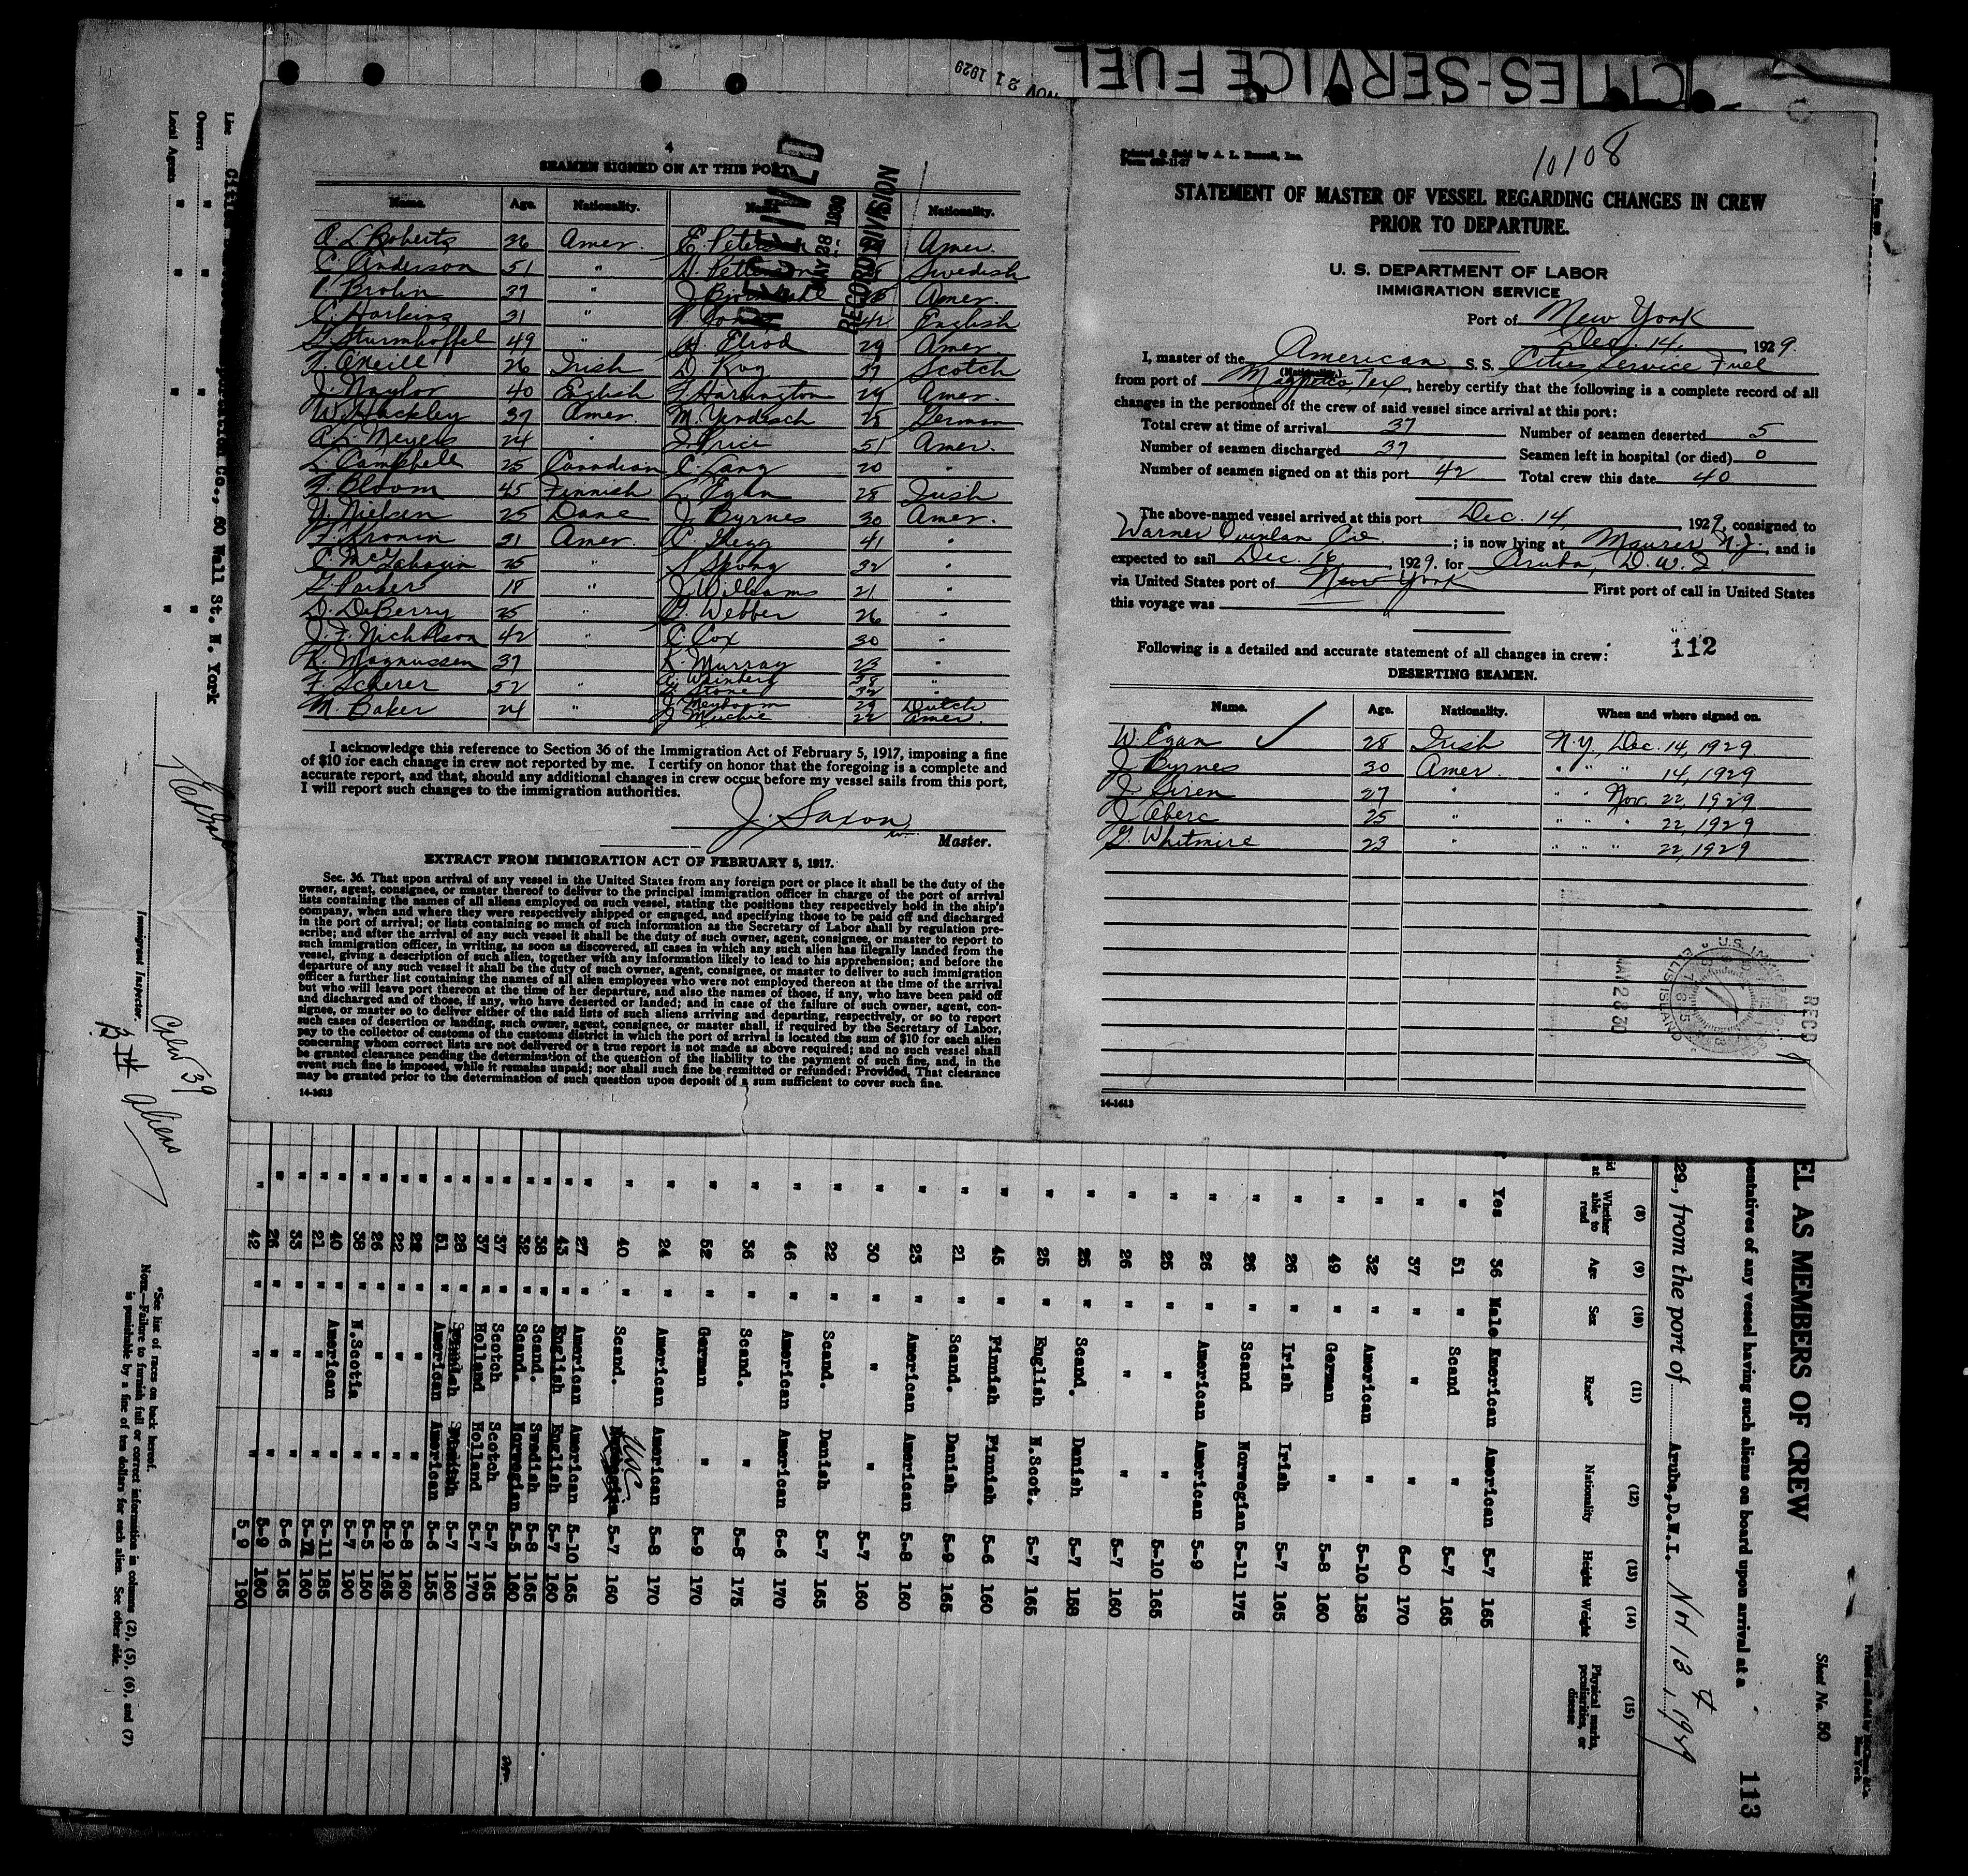 CITIES-SERVICE FUEL
NOV 21 1929
4
SEAMEN SIGNED ON AT THIS PORT.
RECEIVED
MAY 28 1930
RECORD DIVISION
Name. Age. Nationality. Name. Nationality.
R L Roberts 36 Amer. E. Peterson Amer.
C. Anderson 51 " Swedish
Brolin 37 " Amer.
C. Harkins 31 " 42 English
G. Sturmhoffel 49 " Elrod 29 Amer
T. O'Neill 26 Irish D. Roy 37 Scotch
J. Naylor 40 English F. Harrington 29 Amer.
W. Hackley 37 Amer. M. Yendesch 25 German
R. L. Meyers 24 " J. Price 51 Amer.
L Campbell 25 Canadian C. Lang 20 "
F. Bloom 45 Finnish Egan 28 Irish
N. Nielsen 25 Dane J. Byrnes 30 Amer.
F. Kronin 21 Amer. C. Gregg 41 "
C McGahagin 25 " S Spong 32 "
G. Parker 18 " J Williams 21 "
D. DeBerry 25 " G. Webber 26 "
J. F. Nicholson 42 " C. Cox 30 "
K. Magnussen 37 K. Murray 23 "
F. Scherer 52 " Weinberg 38 "
Stone 32 "
M. Baker 24 " J Meyboom 29 Dutch
J Muchie 22 Amer.
I acknowledge this reference to Section 36 of the Immigration Act of February 5, 1917, imposing a fine
of $10 for each change in crew not reported by me. I certify on honor that the foregoing is a complete and
accurate report, and that, should any additional changes in crew occur before my vessel sails from this port,
I will report such changes to the immigration authorities.
J. Saxon
Master.
EXTRACT FROM IMMIGRATION ACT OF FEBRUARY 5, 1917.
Sec. 36. That upon arrival of any vessel in the United States from any foreign port or place it shall be the duty of the
owner, agent, consignee, or master thereof to deliver to the principal immigration officer in charge of the port of arrival
lists containing the names of all aliens employed on such vessel, stating the positions they respectively hold in the ship's
company, when and where they were respectively shipped or engaged, and specifying those to be paid off and discharged
in the port of arrival; or lists containing so much of such information as the Secretary of Labor shall by regulation pre-
scribe; and after the arrival of any such vessel it shall be the duty of such owner, agent, consignee, or master to report to
such immigration officer, in writing, as soon as discovered, all cases in which any such alien has illegally landed from the
vessel, giving a description of such alien, together with any information likely to lead to his apprehension; and before the
departure of any such vessel it shall be the duty of such owner, agent, consignee, or master to deliver to such immigration
officer a further list containing the names of all alien employees who were not employed thereon at the time of the arrival
but who will leave port thereon at the time of her departure, and also the names of those, if any, who have been paid off
and discharged and of those, if any, who have deserted or landed; and in case of the failure of such owner, agent, con-
signee, or master so to deliver either of the said lists of such aliens arriving and departing, respectively, or so to report
such cases of desertion or landing, such owner, agent, consignee, or master shall, if required by the Secretary of Labor,
pay to the collector of customs of the customs district in which the port of arrival is located the sum of $10 for each alien
concerning whom correct lists are not delivered or a true report is not made as above required; and no such vessel shall
be granted clearance pending the determination of the question of the liability to the payment of such fine, and, in the
event such fine is imposed, while it remains unpaid; nor shall such fine be remitted or refunded: Provided, That clearance
may be granted prior to the determination of such question upon deposit of a sum sufficient to cover such fine.
14-1613
Printed & Sold by A. L. Russell, Inc.
10108
STATEMENT OF MASTER OF VESSEL REGARDING CHANGES IN CREW
PRIOR TO DEPARTURE.
U. S. DEPARTMENT OF LABOR
IMMIGRATION SERVICE
Port of New York
Dec. 14, 1929.
I, master of the American S. S. Cities Service Fuel
(Nationality.)
from port of Magpetco, Tex, hereby certify that the following is a complete record of all
changes in the personnel of the crew of said vessel since arrival at this port:
Total crew at time of arrival 37 Number of seamen deserted 5
Number of seamen discharged 37 Seamen left in hospital (or died) 0
Number of seamen signed on at this port 42 Total crew this date 40
The above-named vessel arrived at this port Dec. 14, 1929, consigned to
Warner Quinlan Co. ; is now lying at Maurer N.J., and is
expected to sail Dec. 16, 1929. for Aruba, D.W.I.
via United States port of New York First port of call in United States
this voyage was
Following is a detailed and accurate statement of all changes in crew: 112
DESERTING SEAMEN.
Name. Age. Nationality. When and where signed on.
W. Egan 28 Irish N.Y. Dec. 14, 1929
J Byrnes 30 Amer. " " " 14, 1929
J. Siren 27 " " " Nov. 22, 1929
J Aberc 25 " " " " 22, 1929
G. Whitmire 23 " " " " 22, 1929
RECD
MAY 28 30
U.S. IMMIGRATION
ELLIS ISLAND
14-1613
Line
Owners
Local Agents
60 Wall St. N. York
Immigrant Inspector.
Crew 39
Aliens
*See list of races on back hereof.
Note.—Failure to furnish full or correct information in columns (2), (5), (6), and (7)
is punishable by a fine of ten dollars for each alien. See other side.
EL AS MEMBERS OF CREW
Sheet No. 50
113
entatives of any vessel having such aliens on board upon arrival at a
29, from the port of Aruba, D.W.I. Nov 13, 1929
(8) (9) (10) (11) (12) (13) (14) (15)
Whether able to read Age Sex Race* Nationality Height Weight Physical marks, peculiarities, or disease
Yes 36 Male American American 5-7 165
" 51 " Scand " 5-7 165
" 37 " " " 6-0 170
" 32 " American " 5-10 158
" 49 " German " 5-8 160
" 26 " Irish Irish 5-7 165
" 26 " Scand Norwegian 5-11 175
" 26 " American American 5-9
" 25 " " " 5-10 165
" 26 " " " 5-7 160
" 25 " Scand. Danish 5-7 158
" 25 " English N.Scot. 5-7 165
" 45 " Finnish Finnish 5-6 160
" 21 " Scand. Danish 5-9 165
" 23 " American American 5-8 160
" 30 " " " 5-7 160
" 22 " Scand. Danish 5-7 165
" 46 " American American 6-6 170
" 36 " Scand. " 5-8 175
" 52 " German " 5-9 170
" 24 " American American 5-8 170
" 40 " Scand. USC 5-7 160
" 27 " American American 5-10 165
" 43 " English English 5-7 160
" 38 " Scand. Swedish 5-8 165
" 32 " Scand. Norwegian 5-5 160
" 37 " Scotch Scotch 5-7 165
" 37 " Holland Holland 5-7 170
" 28 " Spanish Spanish 5-7 160
" 51 " American American 5-6 155
" 28 " " " 5-8 160
" 22 " " " 5-9 165
" 26 " " " 5-5 150
" 38 " N.Scotia " 5-7 190
" 40 " American " 5-11 185
" 21 " " " 160
" 33 " " " 5-6 165
" 26 " " " 5-9 160
" 42 " " " 5-9 190